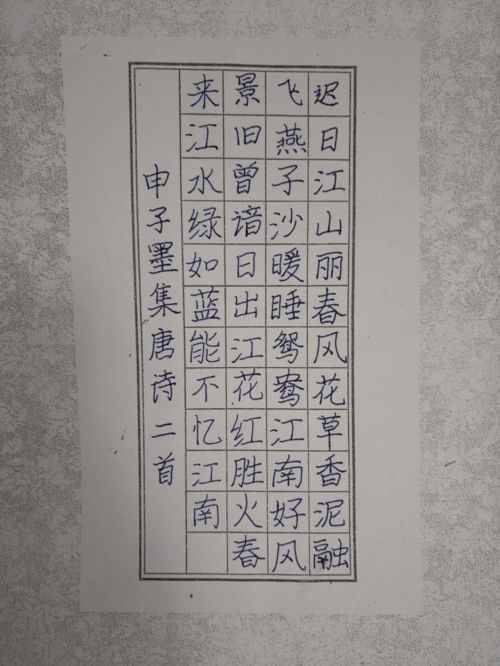 迟日江山丽春风花草香泥融
飞燕子沙暖睡鸳鸯江南好风
景旧曾谙日出江花红胜火春
来江水绿如蓝能不忆江南
申子墨集唐诗二首